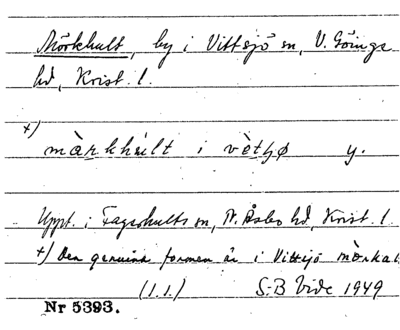 Mörkhult, by i Vittsjö sn, V. Göinge
hd, Krist. l.
+) màrkhùlt i vètʃø y.
Uppt. i Fagerhults sn, N. Åsbo hd, Krist. l.
+) Den genuina formen är i Vittsjö mòrkal
(1.1.) S-B Vide 1949
Nr 5393.